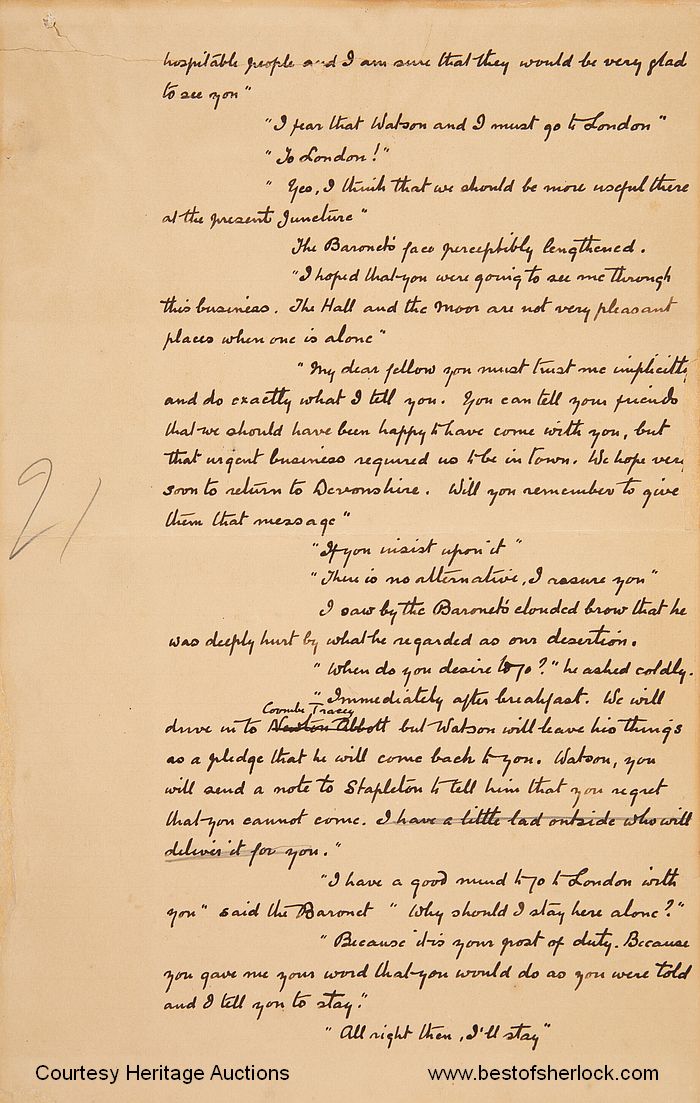 hospitable people and I am sure that they would be very glad
to see you"
"I fear that Watson and I must go to London"
"To London!"
"Yes, I think that we should be more useful there
at the present juncture"
The Baronet's face perceptibly lengthened.
"I hoped that you were going to see me through
this business. The Hall and the Moor are not very pleasant
places when one is alone"
"My dear fellow you must trust me implicitly
and do exactly what I tell you. You can tell your friends
that we should have been happy to have come with you, but
that urgent business required us to be in town. We hope very
soon to return to Devonshire. Will you remember to give
them that message"
21
"If you insist upon it"
"There is no alternative, I assure you"
I saw by the Baronet's clouded brow that he
was deeply hurt by what he regarded as our desertion.
"When do you desire to go?" he asked coldly.
"Immediately after breakfast. We will
Coombe Tracey
drive in to Newton Abbott but Watson will leave his things
as a pledge that he will come back to you. Watson, you
will send a note to Stapleton to tell him that you regret
that you cannot come. I have a little lad outside who will
deliver it for you."
"I have a good mind to go to London with
you" said the Baronet "Why should I stay here alone?"
"Because it is your post of duty. Because
you gave me your word that you would do as you were told
and I tell you to stay."
"All right then, I'll stay"
Courtesy Heritage Auctions
www.bestofsherlock.com